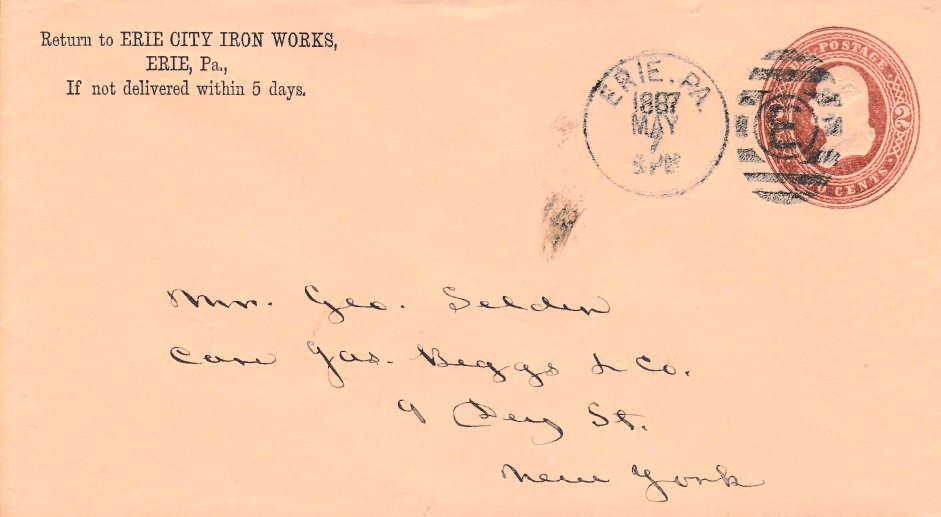 Return to ERIE CITY IRON WORKS,
ERIE, Pa.,
If not delivered within 5 days.
ERIE. PA.
1887
MAY
7
E
POSTAGE
2
CENTS
Mr. Geo. Selden
Care Jas. Beggs & Co.
9 Dey St.
New York